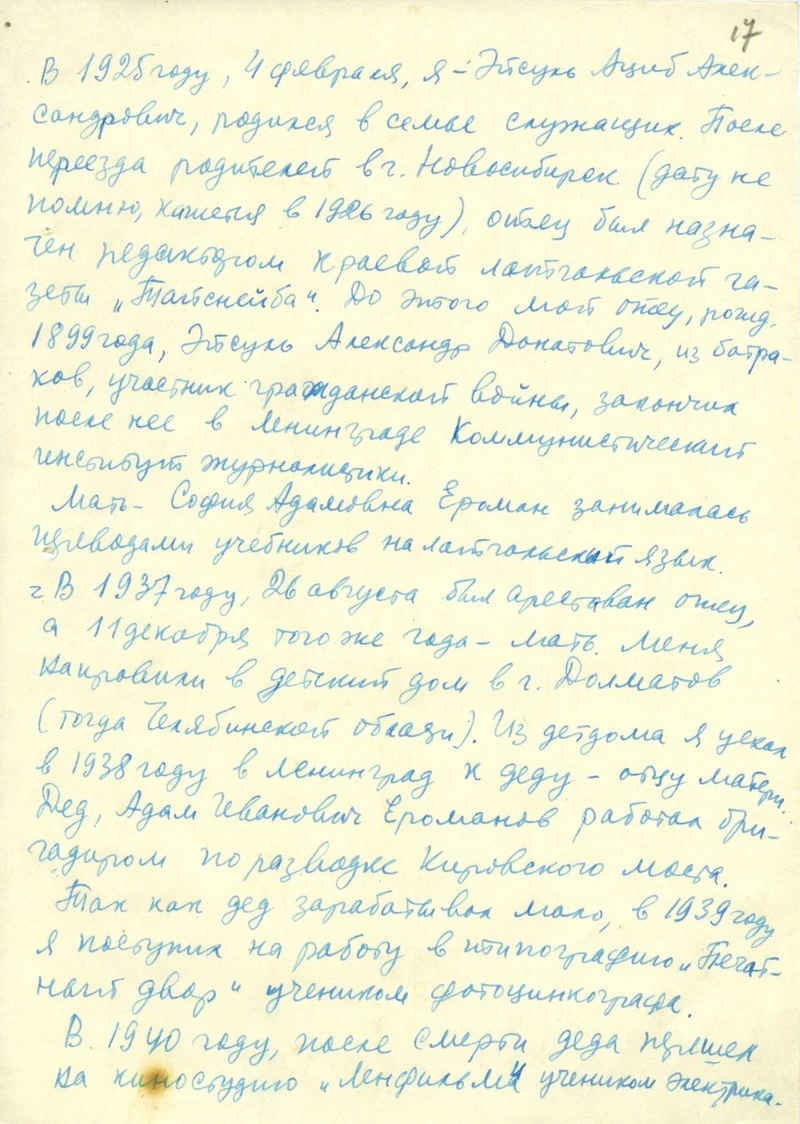 17
В 1925 году, 4 февраля, я - Эйсуль Ациб Алек-
сандрович, родился в семье служащих. После
переезда родителей в г. Новосибирск (дату не
помню, кажется в 1926 году), отец был назна-
чен редактором краевой латгальской га-
зеты „Тайснейба“. До этого мой отец, рожд.
1899 года, Эйсуль Александр Донатович, из батра-
ков, участник гражданской войны, закончил
после нее в Ленинграде Коммунистический
институт журналистики.
Мать - София Адамовна Ероман занималась
переводами учебников на латгальский язык.
В 1937 году, 26 августа был арестован отец,
а 11 декабря того же года - мать. Меня
направили в детский дом в г. Долматов
(тогда Челябинской области). Из детдома я уехал
в 1938 году в Ленинград к деду - отцу матери.
Дед, Адам Иванович Ероманов работал бри-
гадиром по разводке Кировского моста.
Так как дед зарабатывал мало, в 1939 году
я поступил на работу в типографию „Печат-
ный двор“ учеником фотоцинкографа.
В 1940 году, после смерти деда перешел
на киностудию „Ленфильм“ учеником электрика.